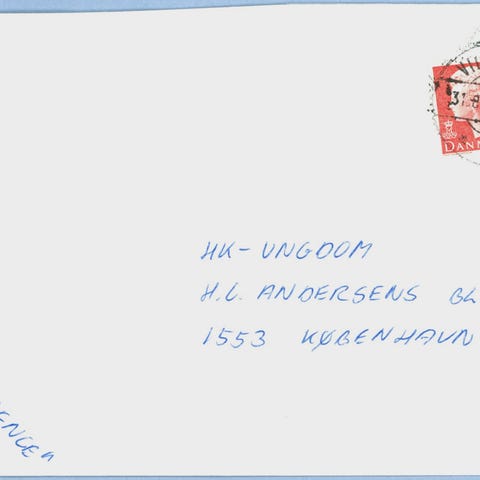 31.8
DANM
HK-UNGDOM
H.C. ANDERSENS BL
1553 KØBENHAVN